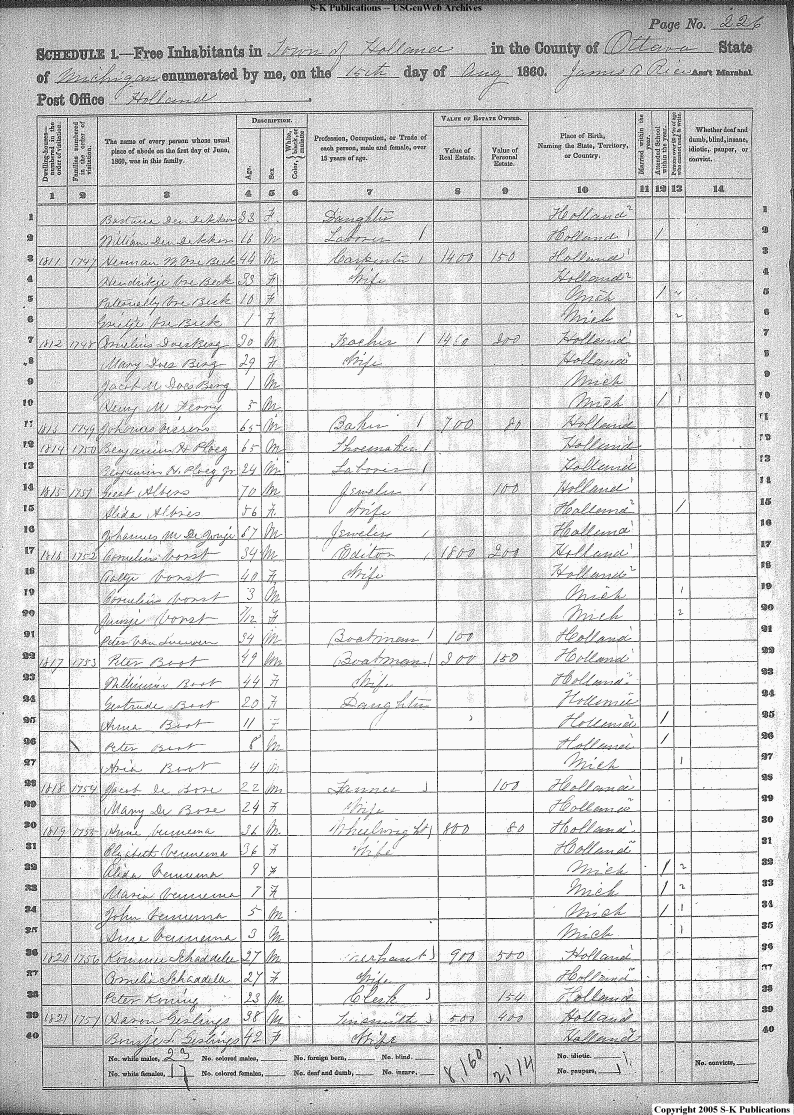 S-K Publications – USGenWeb Archives
Page No. 226
SCHEDULE 1.—Free Inhabitants in Town of Holland in the County of Ottawa State
of Michigan enumerated by me, on the 15th day of Aug 1860. James A Rice Ass't Marshal
Post Office Holland
Dwelling-houses—numbered in the order of visitation. Families numbered in the order of visitation. The name of every person whose usual place of abode on the first day of June, 1860, was in this family. DESCRIPTION. Age. Sex. Color, White, black, or mulatto. Profession, Occupation, or Trade of each person, male and female, over 15 years of age. VALUE OF ESTATE OWNED. Value of Real Estate. Value of Personal Estate. Place of Birth, Naming the State, Territory, or Country. Married within the year. Attended School within the year. Persons over 20 y'rs of age who cannot read & write. Whether deaf and dumb, blind, insane, idiotic, pauper, or convict.
1 2 3 4 5 6 7 8 9 10 11 12 13 14
1 33 F Daughter Holland 1
2 William 16 M Laborer 1 Holland 1 2
3 1811 1747 Herman M Vse Beck 44 M Carpenter 1 1400 150 Holland 3
4 Hendrikje Vse Beck 33 F Wife Holland 4
5 Vse Beck 10 F Mich 1 5
6 Vse Beck 1 F Mich 6
7 1812 1748 Cornelius Doesberg 30 M Teacher 1 200 Holland 7
8 Mary Does Berg 29 F Wife Holland 8
9 Jacob M Does Berg 1 M Mich 9
10 Henry M Ferry 5 M Mich 1 10
11 1749 Johannes 65 M Baker 1 700 80 Holland 11
12 1814 1750 Benjamin H Ploeg 65 M Shoemaker 1 Holland 12
13 Benjamin H Ploeg Jr 24 M Laborer 1 Holland 13
14 1815 1751 Geert Albers 70 M Jeweler 1 100 Holland 14
15 Alida 56 F Wife Holland 1 15
16 Johannes M De Jonge 67 M Jeweler 1 Holland 16
17 1816 1752 Cornelius Vorst 34 M Editor 1 1800 200 Holland 17
18 Vorst 40 F Wife Holland 18
19 Cornelius Vorst 3 M Mich 19
20 Vorst 7/12 F Mich 20
21 Peter Van Leeuwen 34 M Boatman 1 100 Holland 21
22 1817 1753 Peter Boot 49 M Boatman 1 200 150 Holland 22
23 Boot 44 F Wife Holland 23
24 Gertrude Boot 20 F Daughter Holland 24
25 Anna Boot 11 F Holland 1 25
26 Peter Boot 8 M Holland 1 26
27 Boot 4 M Mich 27
28 1818 1754 Jacob De Bose 22 M Tanner 1 100 Holland 28
29 Mary De Bose 24 F Wife Holland 29
30 1819 1755 Vennema 36 M Wheelwright 1 800 80 Holland 30
31 Elizabeth Vennema 36 F Wife Holland 31
32 Alida Vennema 9 F Mich 1 32
33 Maria Vennema 7 F Mich 1 33
34 John Vennema 5 M Mich 1 34
35 Vennema 3 M Mich 35
36 1820 1756 Rommer Schaddelee 27 M 900 500 Holland 36
37 Cornelia Schaddelee 27 F Wife Holland 37
38 Peter Koning 23 M Clerk 1 154 Holland 38
39 1821 1757 Aaron Geslings 38 M Tinsmith 1 500 400 Holland 39
40 Geslings 42 F Wife Holland 40
No. white males, 23 No. colored males, No. foreign born, No. blind. 8,160 2,114 No. idiotic. No. convicts,
No. white females, 17 No. colored females, No. deaf and dumb, No. insane, No. paupers,
Copyright 2005 S-K Publications